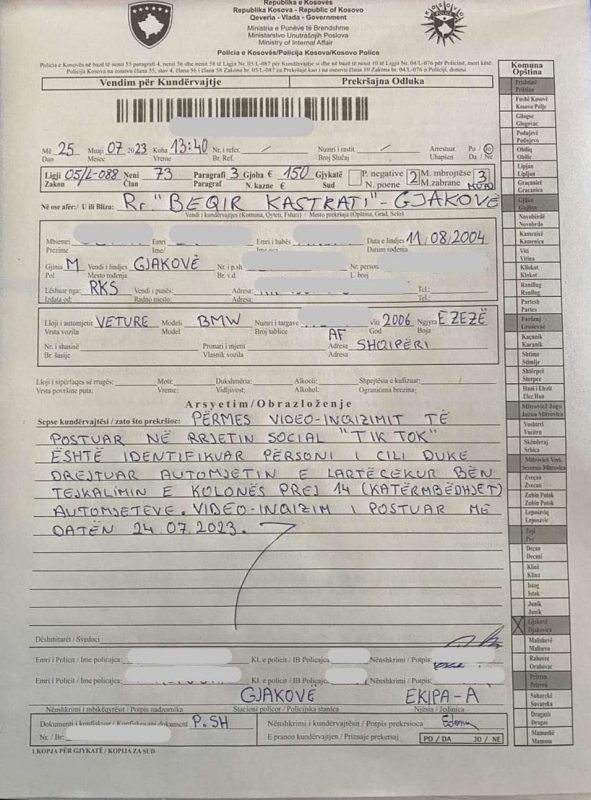 Republika e Kosovës
Republika Kosova - Republic of Kosovo
Qeveria - Vlada - Government
Ministria e Punëve të Brendshme
Ministarstvo Unutrašnjih Poslova
Ministry of Internal Affair
Policia e Kosovës/Policija Kosova/Kosovo Police
Vendim për Kundërvajtje Prekršajna Odluka
Më 25 Muaji 07 2023 Koha 13:40 Nr. i refer. / Numri i rastit. / Arrestuar Po / Jo
Dan Mesec Vreme Br. Ref. Broj Slučaj Uhapšen Da / Ne
Ligji 05/L-088 Neni 73 Paragrafi 3 Gjoba € 150 Gjykatë P. negative 2 M. mbrojtëse 3
Zakon Član Paragraf N. kazne € Sud N. poene M. zabrane MUAJ
Në ose afër: / U ili Blizu: Rr "BEQIR KASTRATI" - GJAKOVË
Vendi i kundërvajtjes (Komuna, Qyteti, Fshati) / Mesto prekršaja (Opština, Grad, Selo)
Mbiemri Emri Emri i babës Data e lindjes 11.08.2004
Prezime Ime Datum rođenja
Gjinia M Vendi i lindjes GJAKOVË Nr. i p.sh Nr. person.
Pol Mesto rođenja Br. v.d. L. broj
Lëshuar nga: RKS Vendi i punës: Adresa: Tel.:
Izdata od: Radno mesto: Adresa: Tel.:
Lloji i automjetit VETURË Modeli BMW Numri i targave Viti 2006 Ngjyra E ZEZË
Vrsta vozila Model Broj tablice AF God Boja
Nr. i shasisë Pronari i mjetit Adresa SHQIPËRI
Br. šasije Vlasnik vozila Adresa
Lloji i sipërfaqes së rrugës: Moti: Dukshmëria: Alkooli: Shpejtësia e kufizuar:
Vrsta površine puta: Vreme: Vidljivost: Alkohol: Ograničena brzina:
Arsyetim/Obrazloženje
Sepse kundërvajtësi / zato što prekršioc: PËRMES VIDEO-INQIZIMIT TË
POSTUAR NË RRJETIN SOCIAL "TIK TOK"
ËSHTË IDENTIFIKUAR PERSONI I CILI DUKE
DREJTUAR AUTOMJETIN E LARTËCEKUR BËN
TEJKALIMIN E KOLONËS PREJ 14 (KATËRMBËDHJET)
AUTOMJETEVE. VIDEO-INQIZIM I POSTUAR ME
DATËN 24.07.2023.
Dëshmitarët / Svedoci
Emri i Policit / Ime policajca: Kl. e policit / IB Policajca Nënshkrimi / Potpis:
Emri i Policit / Ime policajca: Kl. e policit / IB Policajca Nënshkrimi / Potpis:
GJAKOVË EKIPA-A
Nënshkrimi i mbikëqyrësit / Potpis nadzornika Stacioni policor / Policijska stanica Njësia / Jedinica
Dokumenti i konfiskuar / Konfiskovani dokument P.SH Nënshkrimi i kundërvajtësit / Potpis prekršioca
Nr. / Br: E pranon kundërvajtjen / Priznaje prekršaj PO / DA JO / NE
1.KOPJA PËR GJYKATË / KOPIJA ZA SUD
Komuna
Opština
Fushë Kosovë
Kosovo Polje
Gllogoc
Glogovac
Podujevë
Podujevo
Obiliq
Obilic
Lipjan
Lipljan
Graçanicë
Gračanica
Novobërdë
Novobrdo
Kamenicë
Kamenica
Viti
Vitina
Kllokot
Klokot
Ranillug
Ranilug
Partesh
Parteš
Ferizaj
Uroševac
Kaçanik
Kačanik
Shtime
Štimlje
Shtërpcë
Štrpce
Hani i Elezit
Elez Han
Mitrovicë Jugu
Južna Mitrovica
Vushtrri
Vučitrn
Skënderaj
Srbica
Zveçan
Zvečan
Zubin Potok
Zubin Potok
Leposaviq
Leposavić
Pejë
Peć
Deçan
Dečani
Klinë
Klina
Istog
Istok
Junik
Junik
Gjakovë
Đakovica
Malishevë
Mališevo
Rahovec
Orahovac
Prizren
Prizren
Suharekë
Suvareka
Dragash
Dragaš
Mamushë
Mamuša